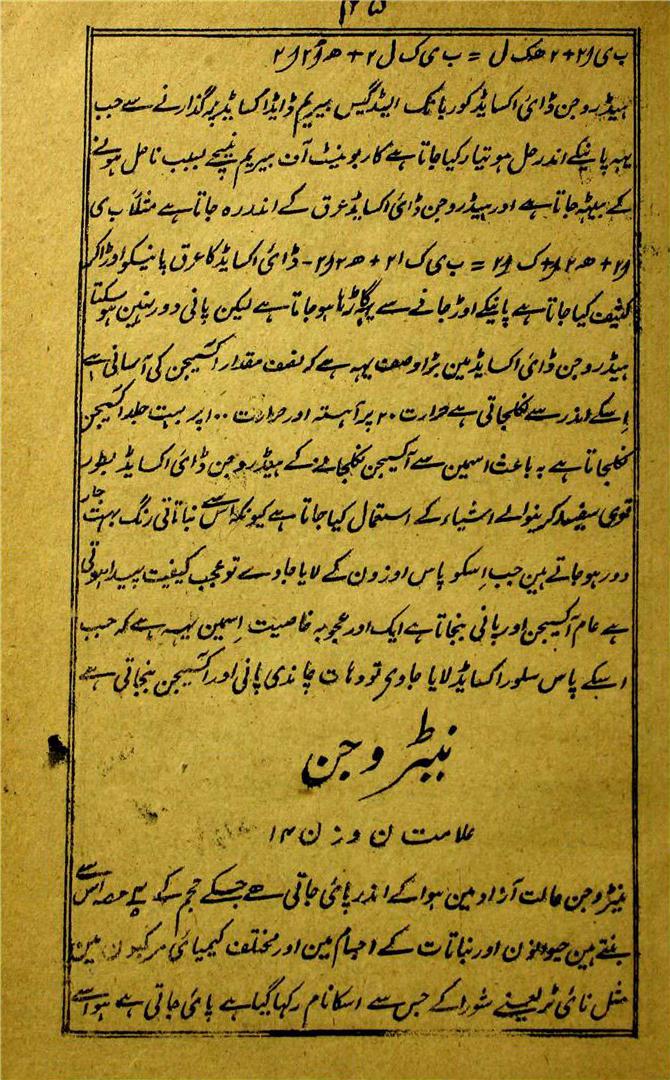 ب ی ا۲ + ۲ ھ ک ل = ب ی ک ل ۲ + ھ ۲ ا ۲
ہیڈروجن ڈائی اکسایڈ کوربانک ایسڈ گیس بیریم ڈایڈاکسایڈ پر گذارنے سے جب
یہہ پانیکے اندر حل ہو تیار کیا جاتا ہے کاربونیٹ آف بیریم نیچے بسبب ناحل ہونے
کے بیٹہ جاتا ہے اور ہیڈروجن ڈائی اکسایڈ عرق کے اندر رہ جاتا ہے مثلاً ب ی
ا۲ + ھ ۲ ا + ک ا۲ = ب ی ک ا۳ + ھ ۲ ا۲ - ڈائی اکسایڈ کا عرق پانیکو اوڑا کر
کثیف کیا جاتا ہے پانیکے اوڑ جانے سے یہہ گاڑہا ہو جاتا ہے لیکن پانی دور نہین ہو سکتا
ہیڈروجن ڈائی اکسایڈ مین بڑا وصف یہہ ہے کہ نصف مقدار آکسیجن کی آسانی سے
اِسکے اندر سے نکلجاتی ہے حرارت ۲۰ پر آہستہ اور حرارت ۱۰۰ پر بہت جلد آکسیجن
نکلجاتا ہے بہ باعث اسمین سے آکسیجن نکلجانے کے ہیڈروجن ڈائی اکسایڈ بطور
قوی سفید کرینوالے اشیاء کے استعمال کیا جاتا ہے کیونکہ اس سے نباتاتی رنگ بہت جلد
دور ہو جاتے ہین جب اِسکو پاس اوزون کے لایا جاوے تو عجب کیفیت پیدا ہوتی
ہے عام آکسیجن اور پانی بنجاتا ہے ایک اور عجوبہ خاصیت اِسمین یہہ ہے کہ جب
اسکے پاس سلور اکسایڈ لایا جاوی تو دہات چاندی پانی اور آکسیجن بنجاتی ہے
نیٹروجن
علامت ن وزن ۱۴
نیٹروجن حالت آزاد مین ہوا کے اندر پائی جاتی ہے جسکے حجم کے حصہ اس سے
بنتے ہین حیوانون اور نباتات کے اجسام مین اور مختلف کیمیائی مرکبون مین
مثل نائی ٹر یعنے شورا کے جس سے اسکا نام رکہا گیا ہے پائی جاتی ہے ہوا سے